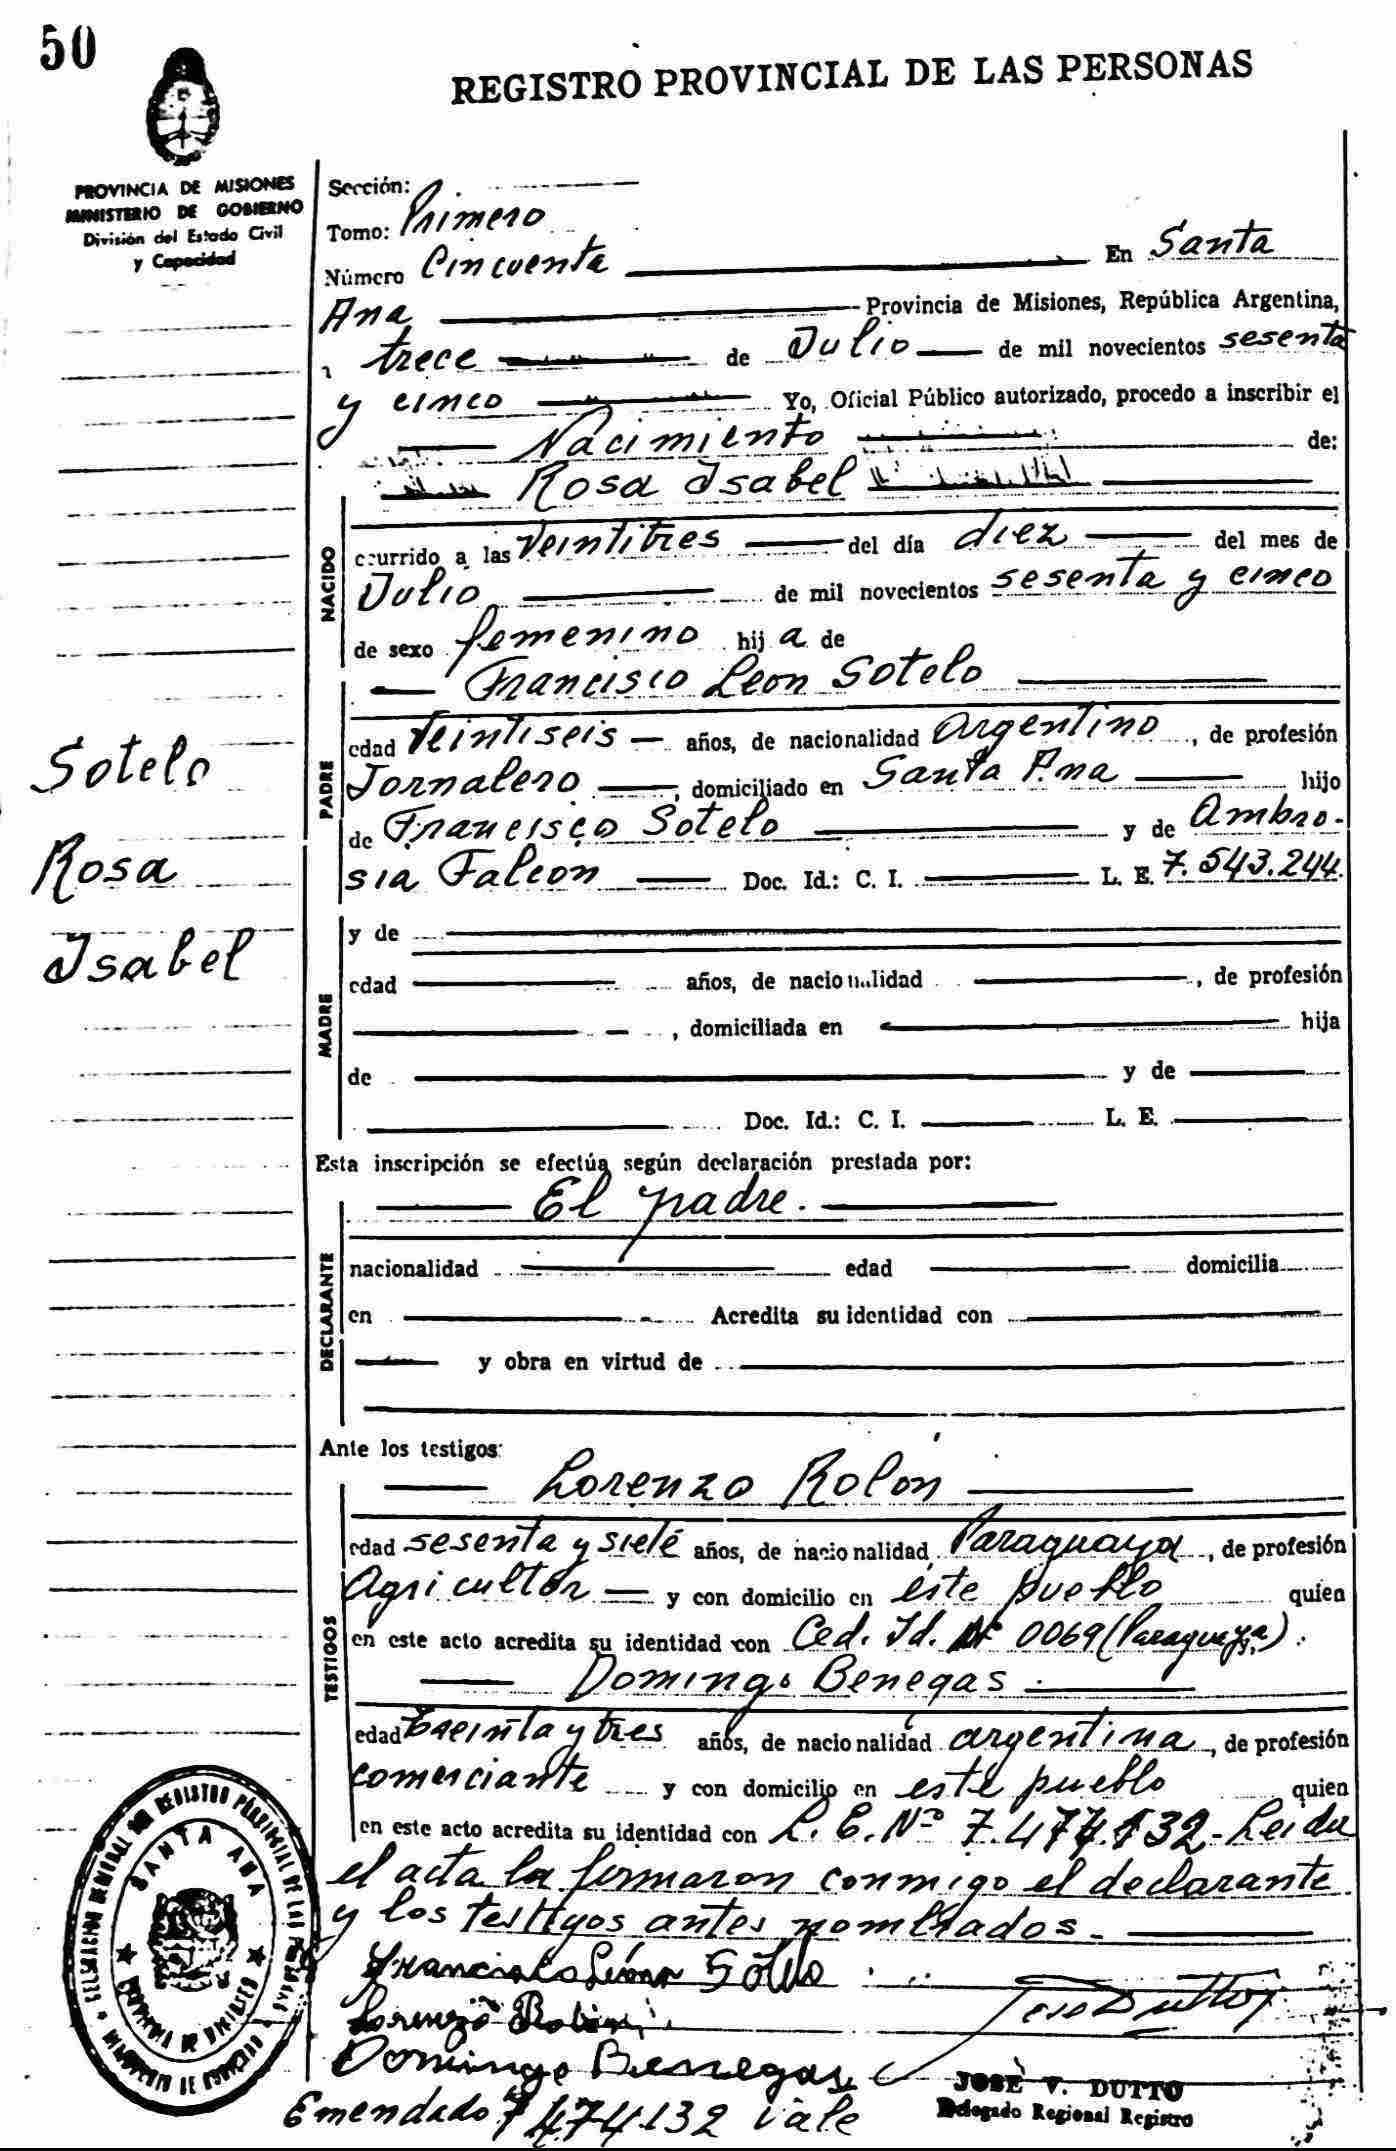 50
REGISTRO PROVINCIAL DE LAS PERSONAS
PROVINCIA DE MISIONES
MINISTERIO DE GOBIERNO
División del Estado Civil
y Capacidad
Sección:
Tomo: Primero
Número Cincuenta En Santa
Ana Provincia de Misiones, República Argentina,
trece de Julio de mil novecientos sesenta
y cinco Yo, Oficial Público autorizado, procedo a inscribir el
Nacimiento de:
Rosa Isabel
NACIDO
ocurrido a las Veintitres del día diez del mes de
Julio de mil novecientos sesenta y cinco
de sexo femenino hij a de
Francisco Leon Sotelo
PADRE
edad Veintiseis años, de nacionalidad Argentino, de profesión
Jornalero, domiciliado en Santa Ana hijo
de Francisco Sotelo y de Ambro-
sia Falcon Doc. Id.: C. I. L. E. 7.543.244.
Sotelo
Rosa
Isabel
MADRE
y de
edad años, de nacionalidad, de profesión
, domiciliada en hija
de y de
Doc. Id.: C. I. L. E.
Esta inscripción se efectúa según declaración prestada por:
El padre.
DECLARANTE
nacionalidad edad domicilia
en Acredita su identidad con
y obra en virtud de
Ante los testigos:
Lorenzo Rolon
TESTIGOS
edad sesenta y siete años, de nacionalidad Paraguaya, de profesión
Agricultor y con domicilio en éste pueblo quien
en este acto acredita su identidad con Ced. Id. Nº 0069 (Paraguaya).
Domingo Benegas
edad treinta y tres años, de nacionalidad argentina, de profesión
comerciante y con domicilio en este pueblo quien
en este acto acredita su identidad con L. E. Nº 7.474.132- Leida
el acta la firmaron conmigo el declarante
y los testigos antes nombrados.
Francisco León Sotelo
Lorenzo Rolon
Domingo Benegas
Jose Dutto
JOSE V. DUTTO
Delegado Regional Registro
Emendado 7474132 Vale
SANTA ANA
PROVINCIA DE MISIONES